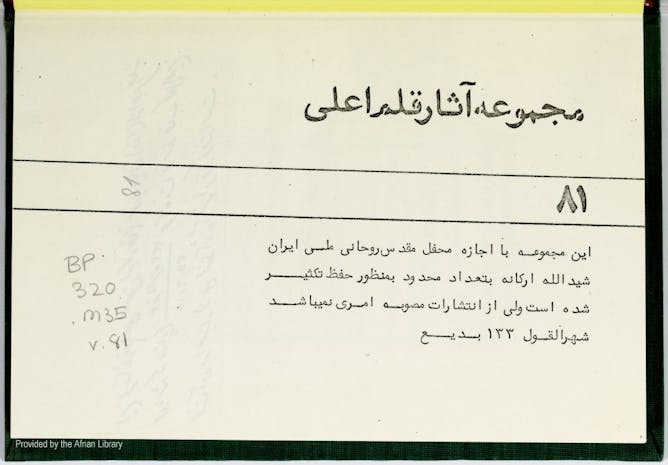 مجموعه آثار قلم اعلی
۸۱
این مجموعه با اجازه محفل مقدس روحانی ملی ایران
شیدالله ارکانه بتعداد محدود بمنظور حفظ تکثیر
شده است ولی از انتشارات مصوبه امری نمیباشد
شهرالقول ۱۳۳ بدیع
BP.
320
.m35
v.81
Provided by the Afnan Library